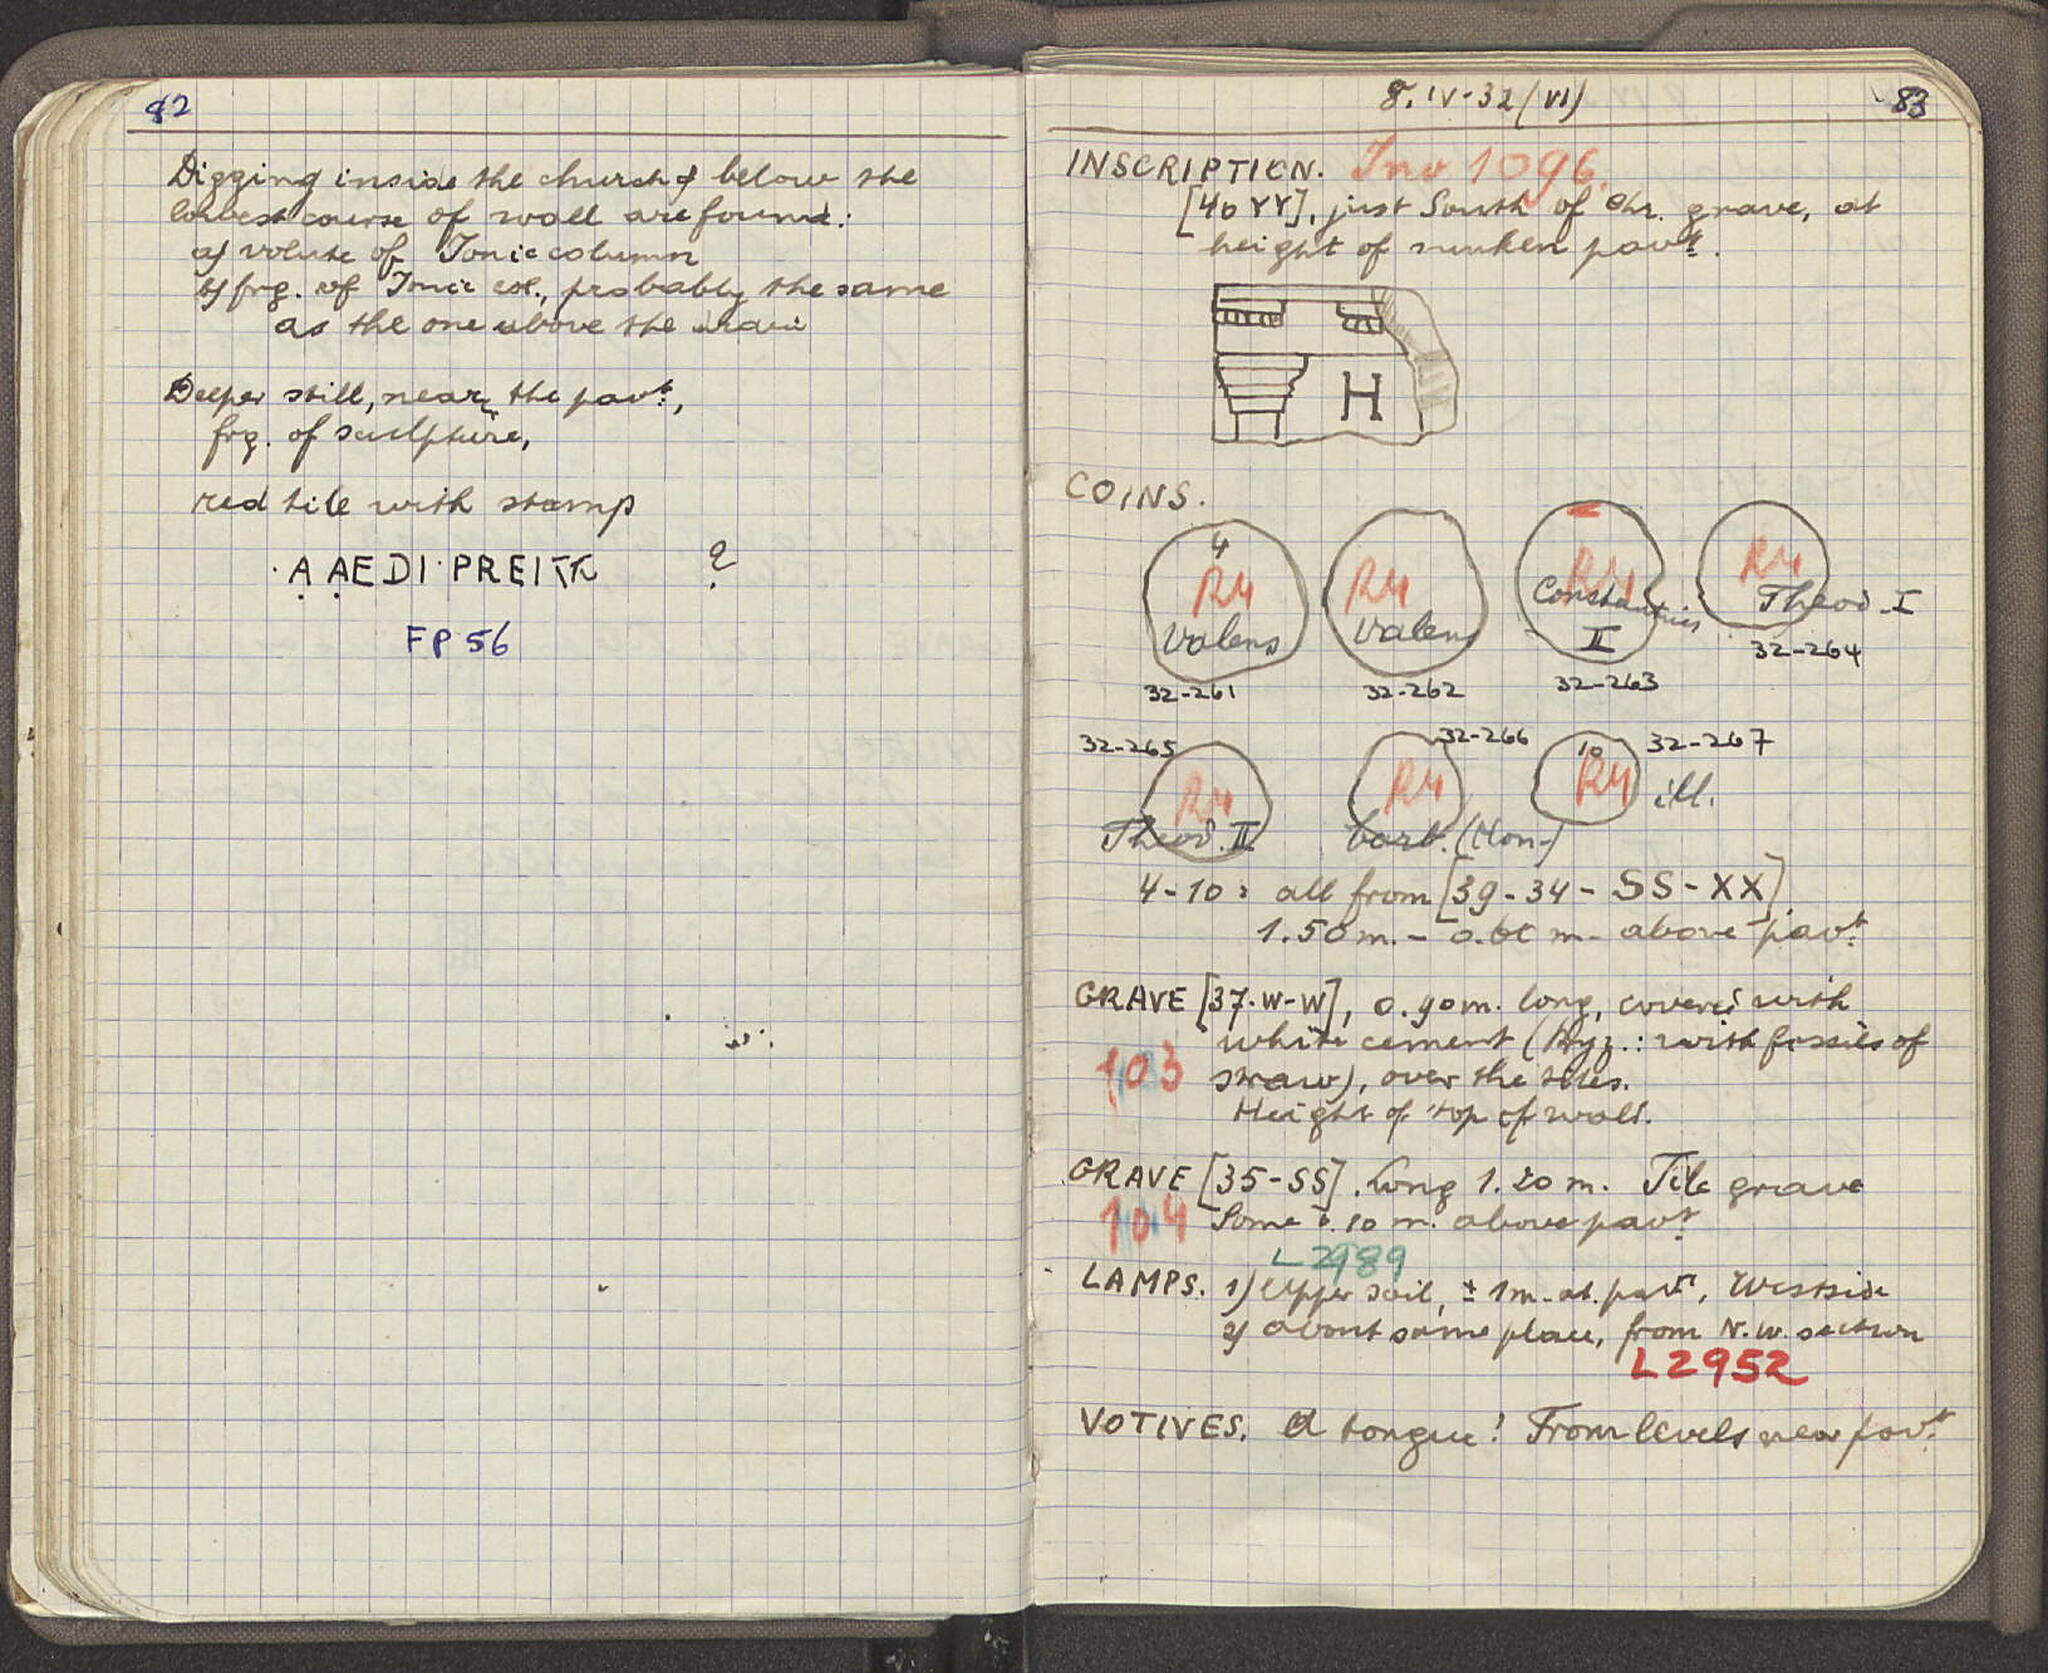 82
Digging inside the church & below the
lowest course of wall are found:
a) volute of Ionic column
b) frg. of Ionic col., probably the same
as the one above the drain
Deeper still, near the pavt.,
frg. of sculpture,
red tile with stamp
· A AEDI · PREI ?
FP 56
8. IV-32 (VI) 83
INSCRIPTION. Inv 1096.
[40 YY], just South of Chr. grave, at
height of sunken pavt.
H
COINS.
4
R4 R4 R4 R4
Valens Valens Constantius II Theod. I
32-261 32-262 32-263 32-264
32-265 32-266 10 32-267
R4 R4 R4 ill.
Theod. II barb. (Hon-)
4-10: all from [39-34-SS-XX]
1.50 m. - 0.60 m. above pavt.
GRAVE [37·W-W], 0.90 m. long, covered with
white cement (Hyz.: with fossils of
103 straw), over the tiles.
Height of top of wall.
GRAVE [35-SS]. Long 1.20 m. Tile grave
104 Some 0.10 m. above pavt.
L 2989
LAMPS. 1) Upper soil, ± 1 m. ab. pavt, Westside
2) about same place, from N.W. section
L 2952
VOTIVES. A tongue! From levels near pavt.